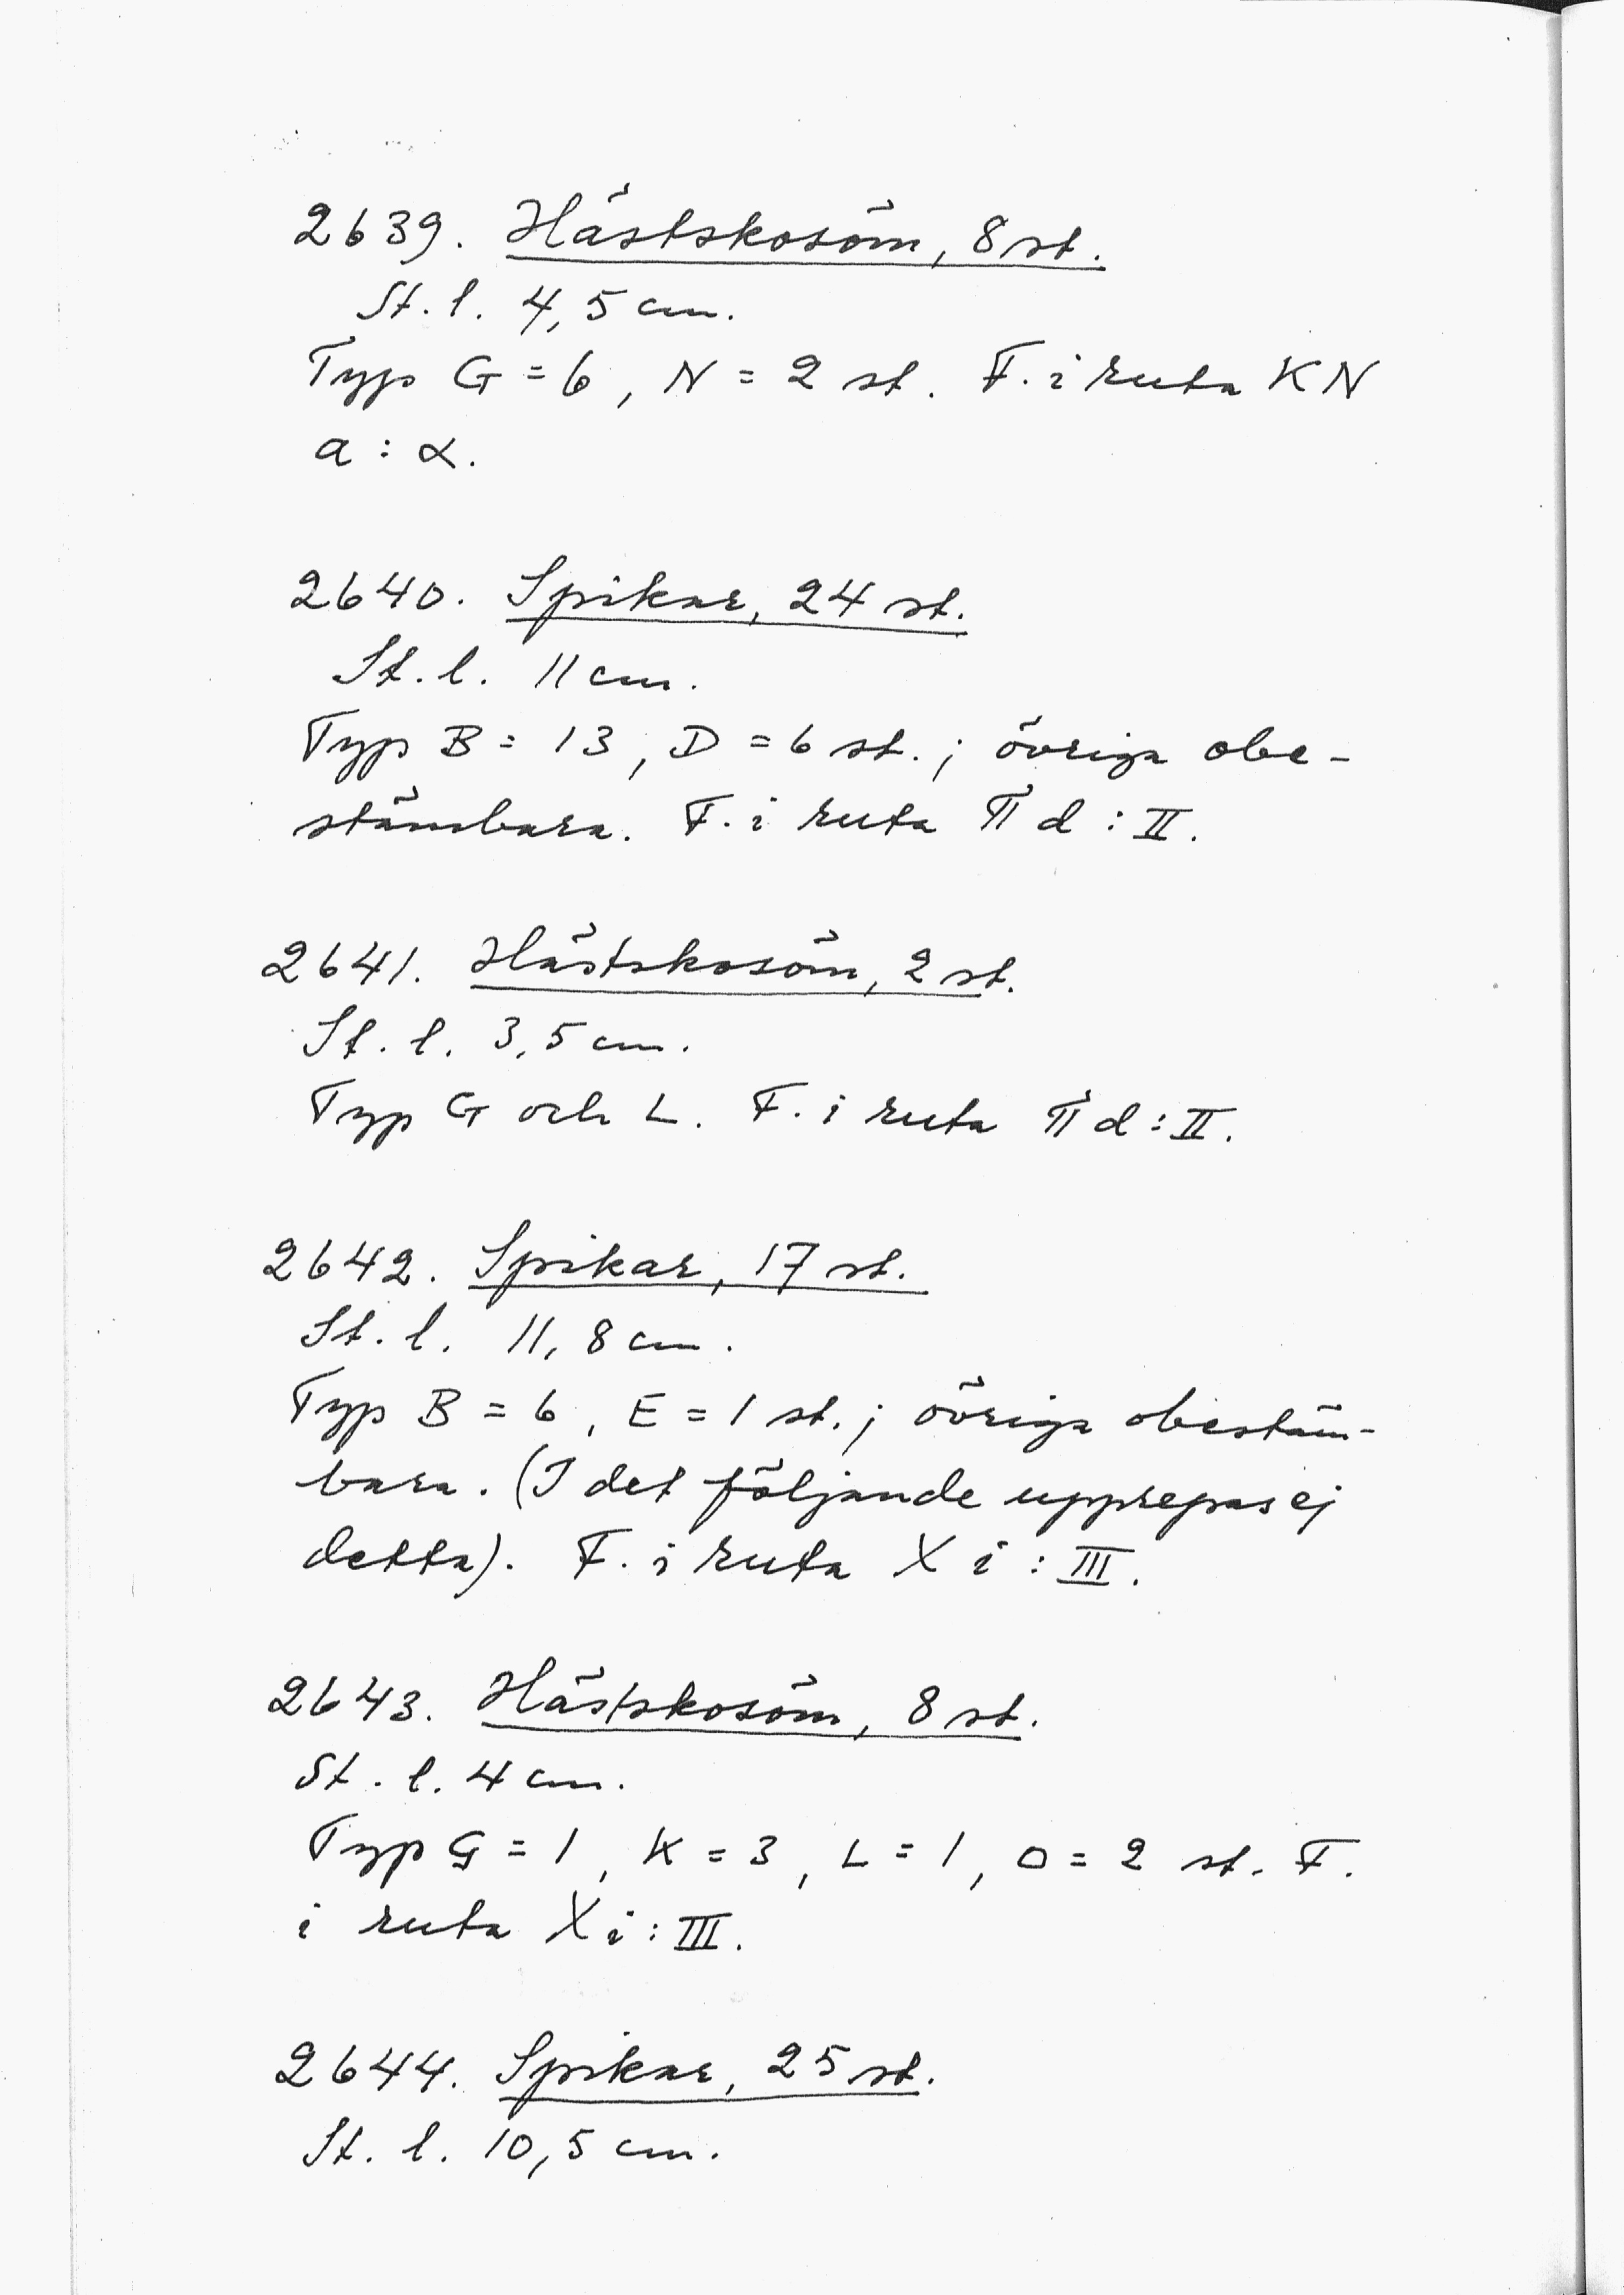 2639. Hästskosöm, 8 st.
St. l. 4,5 cm.
Typ G = 6, N = 2 st. F. i ruta KN
a : α.
2640. Spikar, 24 st.
St. l. 11 cm.
Typ B = 13, D = 6 st. ; övriga obe-
stämbara. F. i ruta Π d : II.
2641. Hästskosöm, 2 st.
St. l. 3,5 cm.
Typ G och L. F. i ruta Π d : II.
2642. Spikar, 17 st.
St. l. 11,8 cm.
Typ B = 6, E = 1 st. ; övriga obestäm-
bara. (I det följande upprepas ej
detta). F. i ruta X i : III.
2643. Hästskosöm, 8 st.
St. l. 4 cm.
Typ G = 1, K = 3, L = 1, O = 2 st. F.
i ruta X i : III.
2644. Spikar, 25 st.
St. l. 10,5 cm.